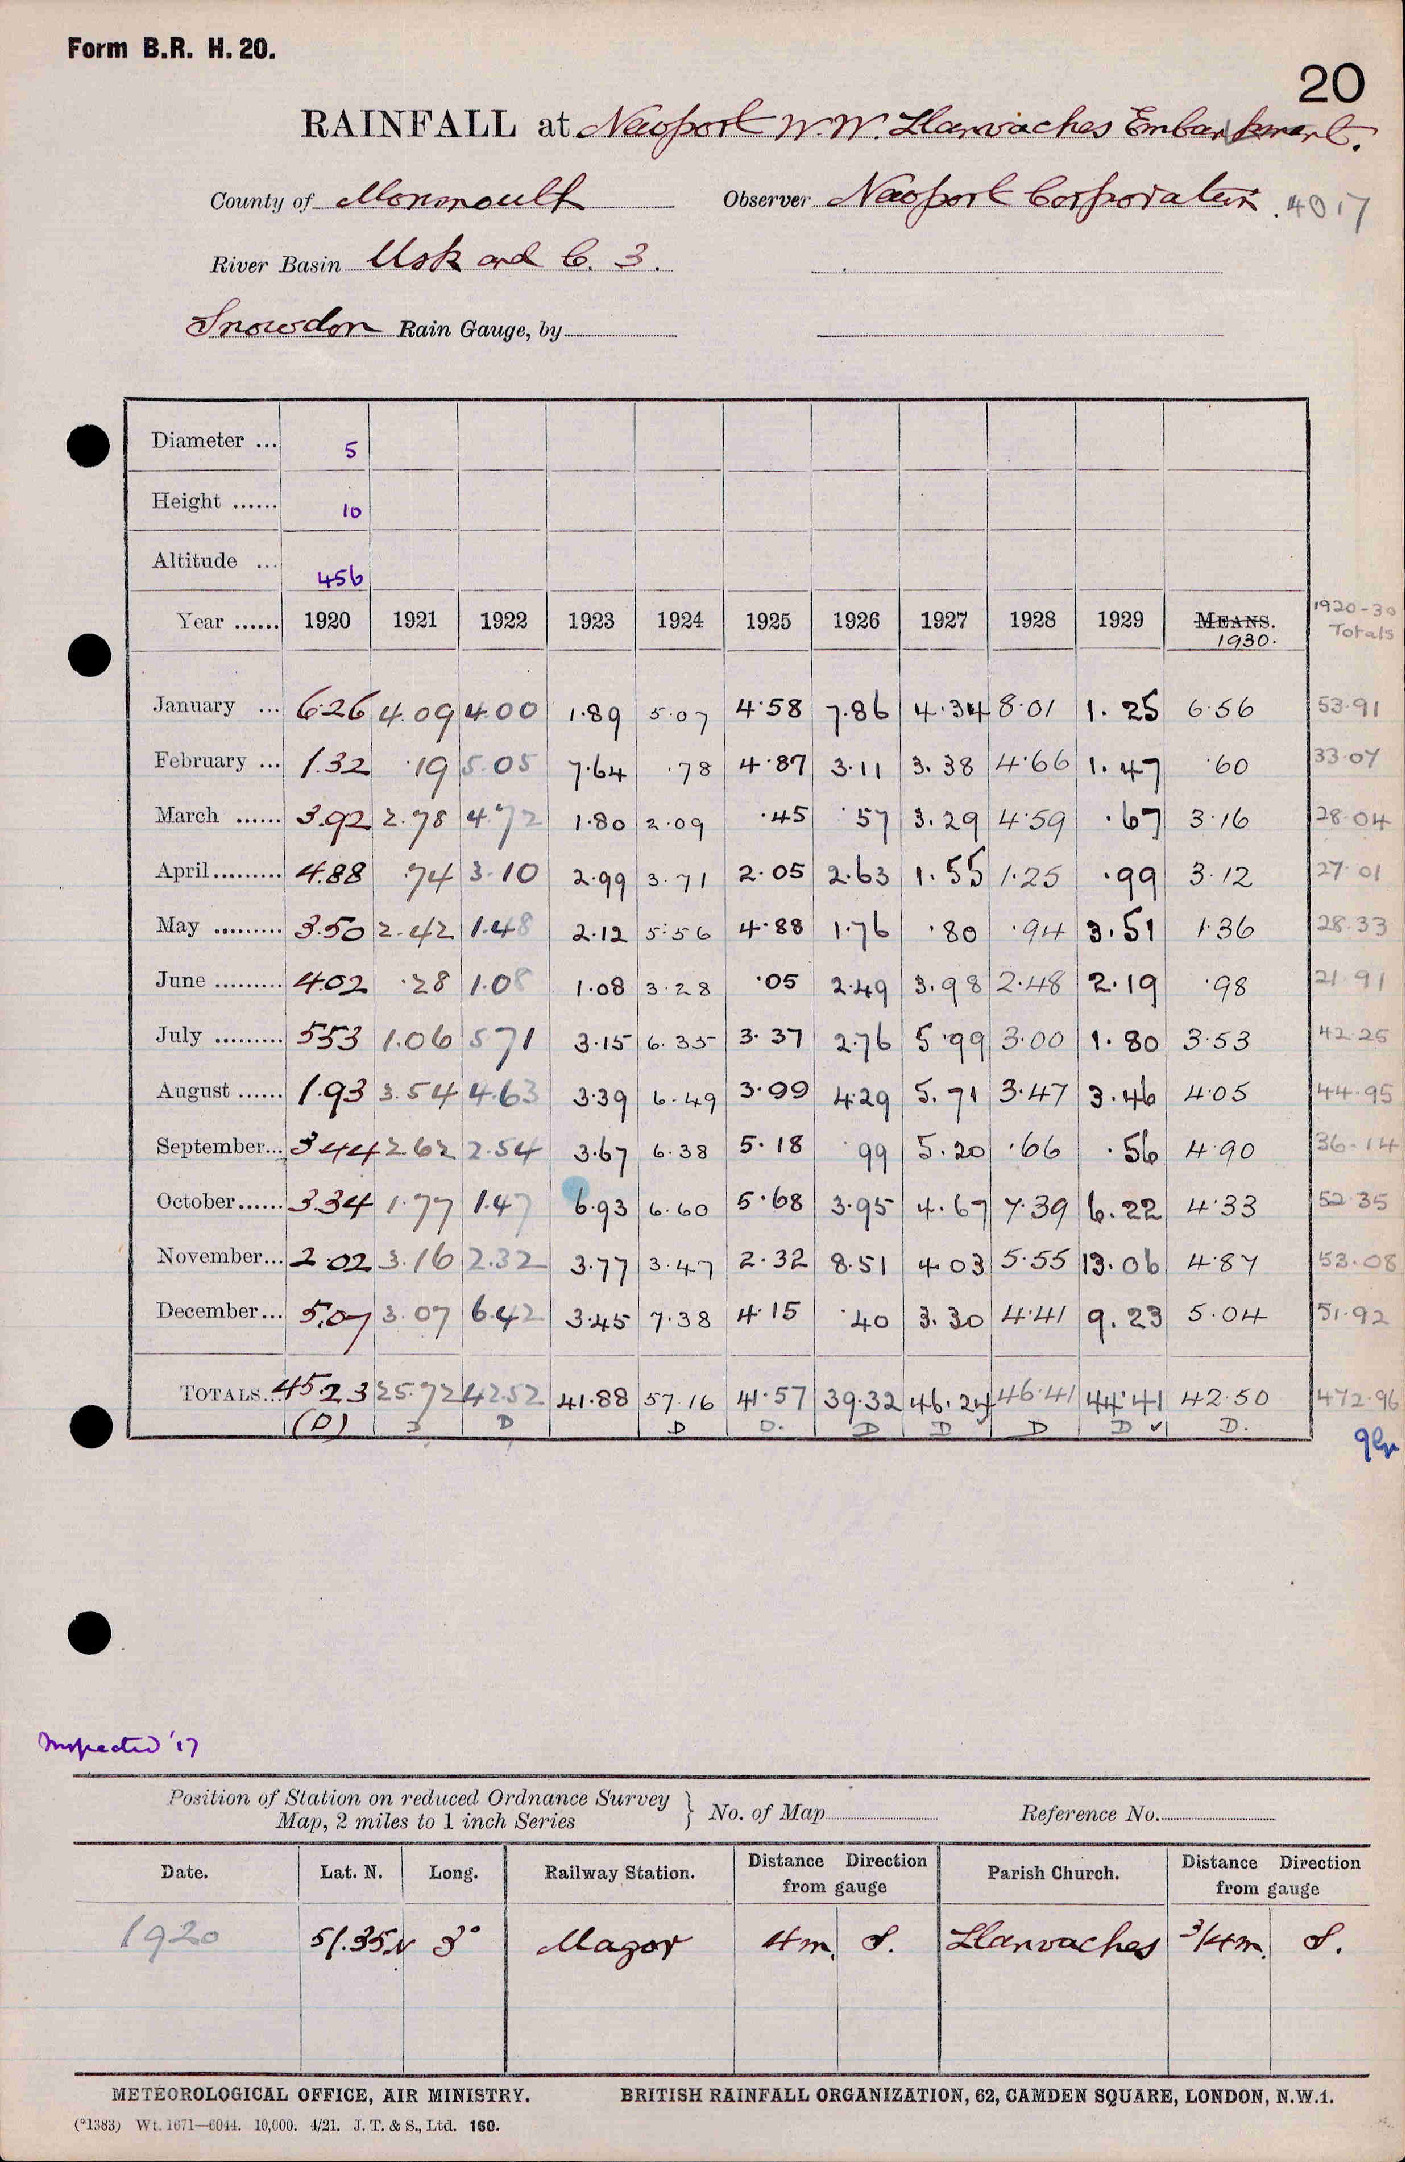 Form B.R. H. 20.
20
RAINFALL at Newport W.W. Llanvaches Embankment.
County of Monmouth Observer Newport Corporation. 4017
River Basin Usk and C. 3.
Snowdon Rain Gauge, by
Diameter ... 5
Height ...... 10
Altitude ... 456
Year ...... 1920 1921 1922 1923 1924 1925 1926 1927 1928 1929 MEANS. 1930. 1920-30 Totals
January ... 6.26 4.09 4.00 1.89 5.07 4.58 7.86 4.34 8.01 1.25 6.56 53.91
February ... 1.32 .19 5.05 7.64 .78 4.87 3.11 3.38 4.66 1.47 .60 33.07
March ...... 3.92 2.78 4.72 1.80 2.09 .45 .57 3.29 4.59 .67 3.16 28.04
April ......... 4.88 .74 3.10 2.99 3.71 2.05 2.63 1.55 1.25 .99 3.12 27.01
May ......... 3.50 2.42 1.48 2.12 5.56 4.88 1.76 .80 .94 3.51 1.36 28.33
June ......... 4.02 .28 1.08 1.08 3.28 .05 2.49 3.98 2.48 2.19 .98 21.91
July ......... 5.53 1.06 5.71 3.15 6.35 3.37 2.76 5.99 3.00 1.80 3.53 42.25
August ...... 1.93 3.54 4.63 3.39 6.49 3.99 4.29 5.71 3.47 3.46 4.05 44.95
September... 3.44 2.62 2.54 3.67 6.38 5.18 .99 5.20 .66 .56 4.90 36.14
October...... 3.34 1.77 1.47 6.93 6.60 5.68 3.95 4.67 7.39 6.22 4.33 52.35
November... 2.02 3.16 2.32 3.77 3.47 2.32 8.51 4.03 5.55 13.06 4.87 53.08
December... 5.07 3.07 6.42 3.45 7.38 4.15 .40 3.30 4.41 9.23 5.04 51.92
TOTALS... 45.23 25.72 42.52 41.88 57.16 41.57 39.32 46.24 46.41 44.41 42.50 472.96
(D) D D D D. D D D D ✓ D.
Inspected '17
Position of Station on reduced Ordnance Survey
Map, 2 miles to 1 inch Series } No. of Map Reference No.
Date. Lat. N. Long. Railway Station. Distance Direction from gauge Parish Church. Distance Direction from gauge
1920 51.35N 3° Magor 4m. S. Llanvaches 3/4m. S.
METEOROLOGICAL OFFICE, AIR MINISTRY. BRITISH RAINFALL ORGANIZATION, 62, CAMDEN SQUARE, LONDON, N.W.1.
(*1383) Wt. 1671—6044. 10,000. 4/21. J. T. & S., Ltd. 160.